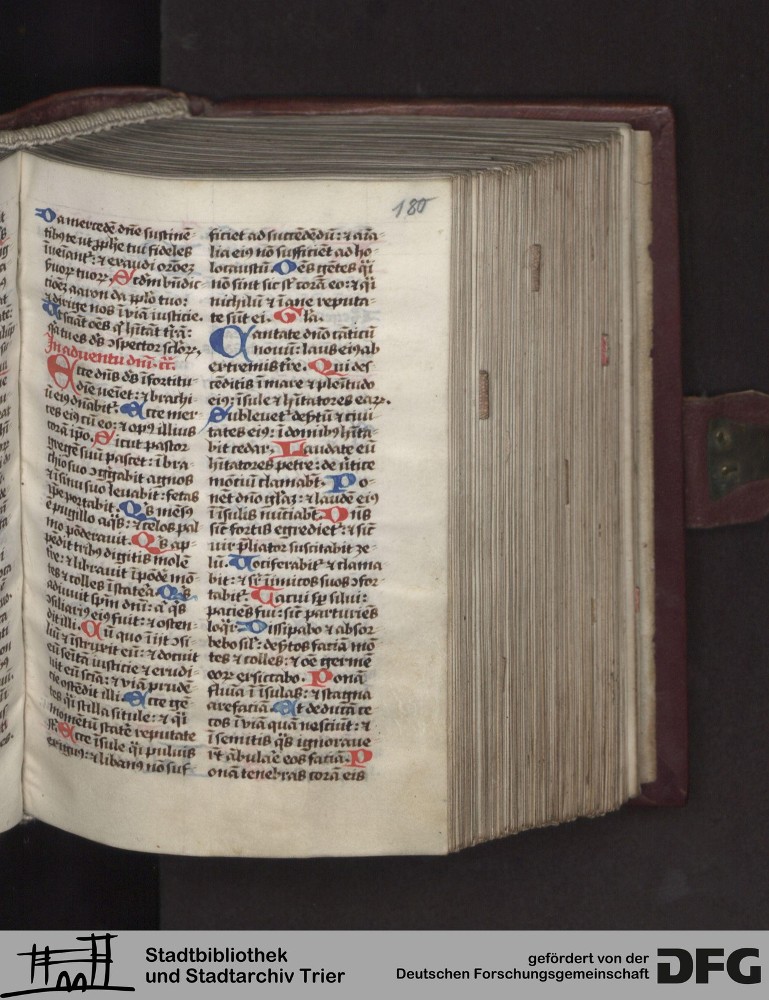 180
Da mercedē dn̄e sustinē-
tibꝯ te ut ꝓph̄e tui fideles
īueīant᷑: ⁊ exaudi or̄oēs
suoꝝ tuoꝝ. Scdm̄ bn̄dic-
tiōeꝫ aaron da pp̄lo tuo:
⁊ dirige nos ī viā iusticie.
Et sciāt oēs q̄ hītāt tr̄ā:
q̄a tu es dſ̄
In aduentu dnī. cā.
Ecce dn̄s dſ̄ ī fortitu-
dīe ueīet: ⁊ brachi-
ū eiꝯ dn̄abit᷑. Ecce mer-
ces eiꝯ cū eo: ⁊ opꝯ illius
corā ip̄o. Sicut pastor
gregē suū pascet: ī bra-
chio suo ɔgͥgabit agnos
⁊ ī sinu suo leuabit: fetas
ip̄e portabit. Qͥs mēsꝯ
ē pugillo aqͣs: ⁊ celos pal
mo pōderauit. Qͥs ap-
pēdit tribꝯ digitis molē
tr̄e: ⁊ librauit ī pōde mō
tes ⁊ colles ī statēa. Qͥs
adiuuit sp̄m dn̄i: aͭ qͥs
ɔsiliariꝯ eiꝯ fuit: ⁊ osten-
dit illi. Cū quo īijt ɔsi-
liū ⁊ īstruxit eū: ⁊ docuit
eū seītā iusticie ⁊ erudi-
uit eū sciā: ⁊ viā prudē
cie ostēdit illi. Ecce gē-
tes qͥ stilla situle: ⁊ qͥ
momētū statē reputate
sͭ. Ecce īsule qͥ puluis
exiguꝯ: ⁊ libanꝯ nō suf
ficiet ad succēdēdū: ⁊ aīa-
lia eiꝯ nō sufficiēt ad ho-
locaustū. Oēs gētes qͥ
nō sint sic sͭ corā eo: ⁊ qͥ
nichilū ⁊ īane reputa-
te sūt ei. Gl̄a.
Cantate dn̄o cāticū
nouū: laus eiꝯ ab
extremis tr̄e. Qui des
cēditis ī mare ⁊ plēitudo
eiꝯ: īsule ⁊ hītatores eaꝝ.
Subleuet᷑ desꝑtū ⁊ ciui
tates eiꝯ: ī domibꝯ hīta-
bit cedar. Laudate eū
hītatores petre: de ūtice
mōtiū clamabt̄. Po-
nēt dn̄o gl̄aꝫ: ⁊ laudē eiꝯ
ī īsulis nūtiabt̄. Dn̄s
sic̄ fortis egrediet᷑: ⁊ sic̄
uir p̄liator suscitabit ze-
lū. Vociferabit᷑ ⁊ clama
bit: ⁊ sꝑ īimicos suos ɔfor-
tabit᷑. Tacui sꝑ silui:
paciēs fui: sic̄ parturiēs
loqͣr. Dissipabo ⁊ absor
bebo sil̄: desꝑtos faciā mō
tes ⁊ colles: ⁊ oē germē
eoꝝ exsiccabo. Ponā
fluīa ī īsulas: ⁊ stagna
arefaciā. Et deducā ce
cos ī viā quā nesciūt: ⁊
ī semitis qͣs ignoraue
rt̄ ābulae eos faciā. P
onā tenebras corā eis
Stadtbibliothek
und Stadtarchiv Trier
gefördert von der
Deutschen Forschungsgemeinschaft
DFG